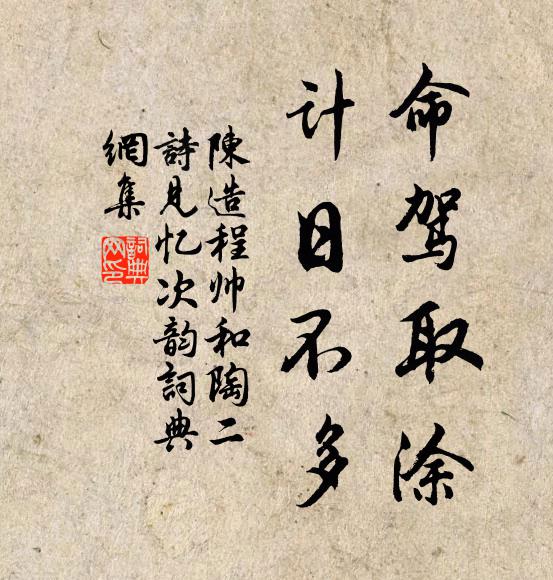 命驾取涂
计日不多
陳造程帅和陶二
詩見忆次韵詞典
網集
詞典
网印